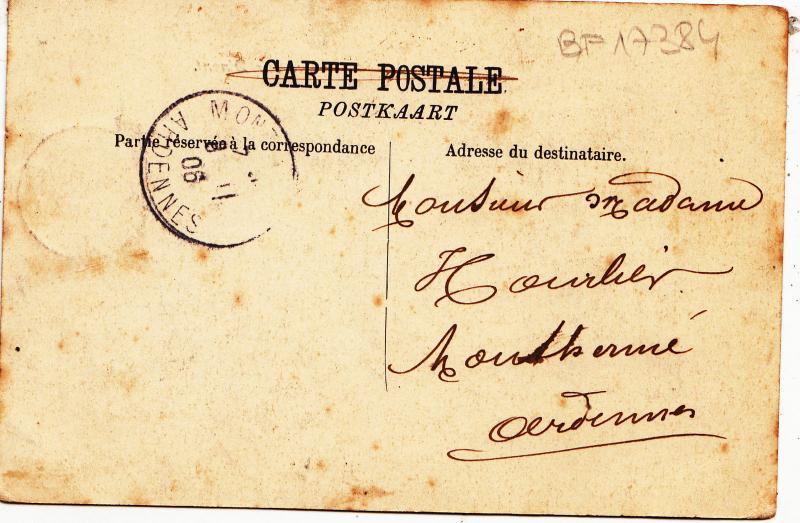 BF 17384
CARTE POSTALE
POSTKAART
Partie réservée à la correspondance
Adresse du destinataire.
MONT
ARDENNES
7
11
06
Monsieur Madame
Hourlier
Monthermé
Ardennes